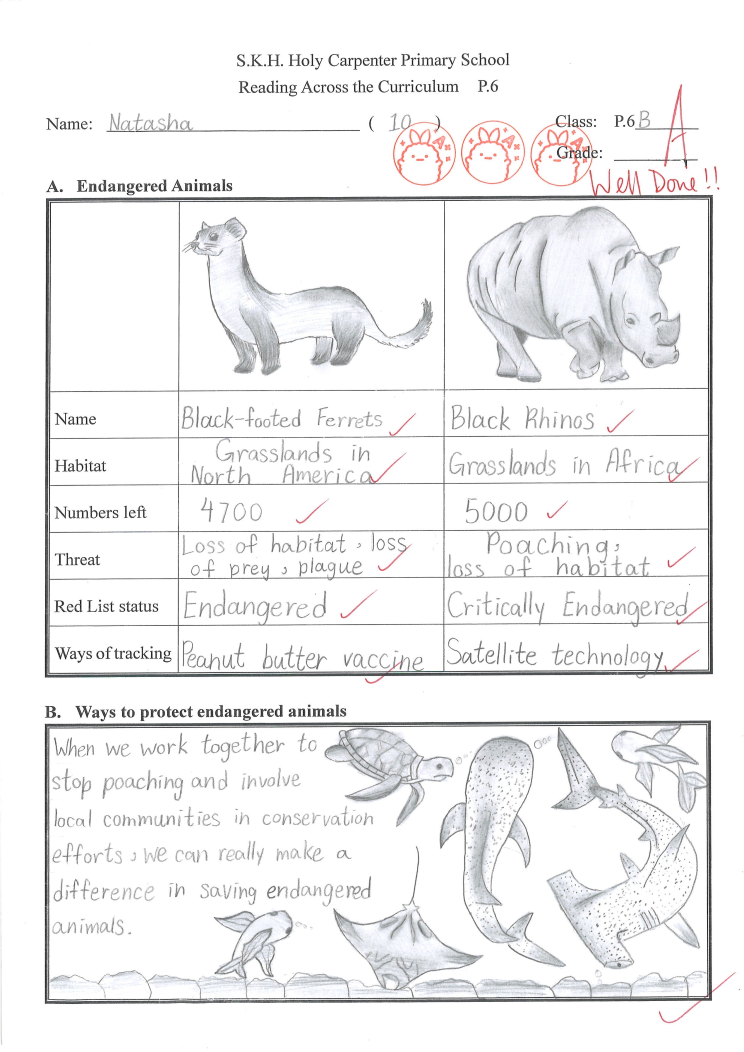 S.K.H. Holy Carpenter Primary School
Reading Across the Curriculum P.6
Name: Natasha ( 10 ) Class: P.6B
Grade: A
Well Done!!
A. Endangered Animals
Name Black-footed Ferrets Black Rhinos
Habitat Grasslands in North America Grasslands in Africa
Numbers left 4700 5000
Threat Loss of habitat, loss of prey, plague Poaching, loss of habitat
Red List status Endangered Critically Endangered
Ways of tracking Peanut butter vaccine Satellite technology
B. Ways to protect endangered animals
When we work together to
stop poaching and involve
local communities in conservation
efforts, we can really make a
difference in saving endangered
animals.